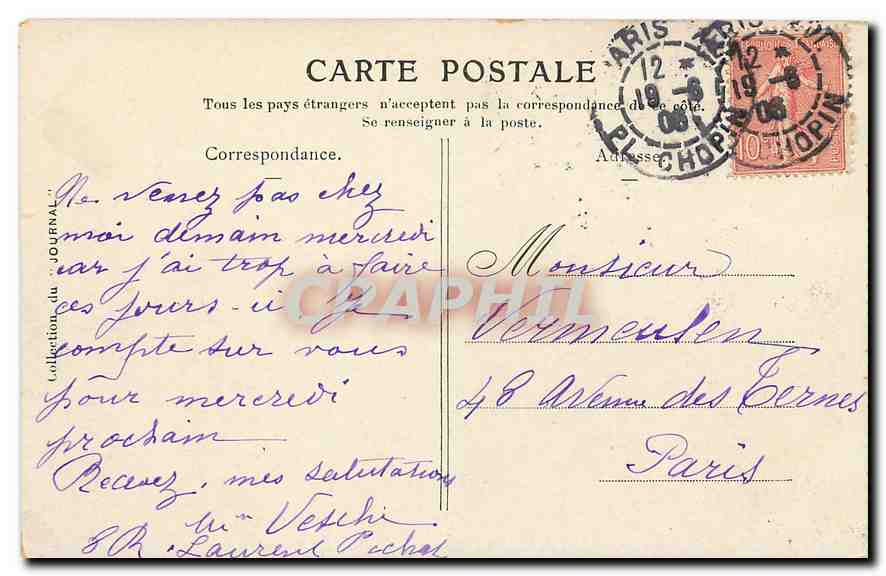 CARTE POSTALE
Tous les pays étrangers n'acceptent pas la correspondance de ce côté.
Se renseigner à la poste.
Correspondance.
Adresse
Collection du "JOURNAL"
Ne venez pas chez
moi demain mercredi
car j'ai trop à faire
ces jours-ci. Je
compte sur vous
pour mercredi
prochain
Recevez, mes salutations
8 R. Laurent Pichat
Monsieur
Vermeulen
48 Avenue des Ternes
Paris
PARIS
12 *
19 -6
06
PL. CHOPIN
PARIS
12 *
19 -6
06
CHOPIN
10
CPAPHIL